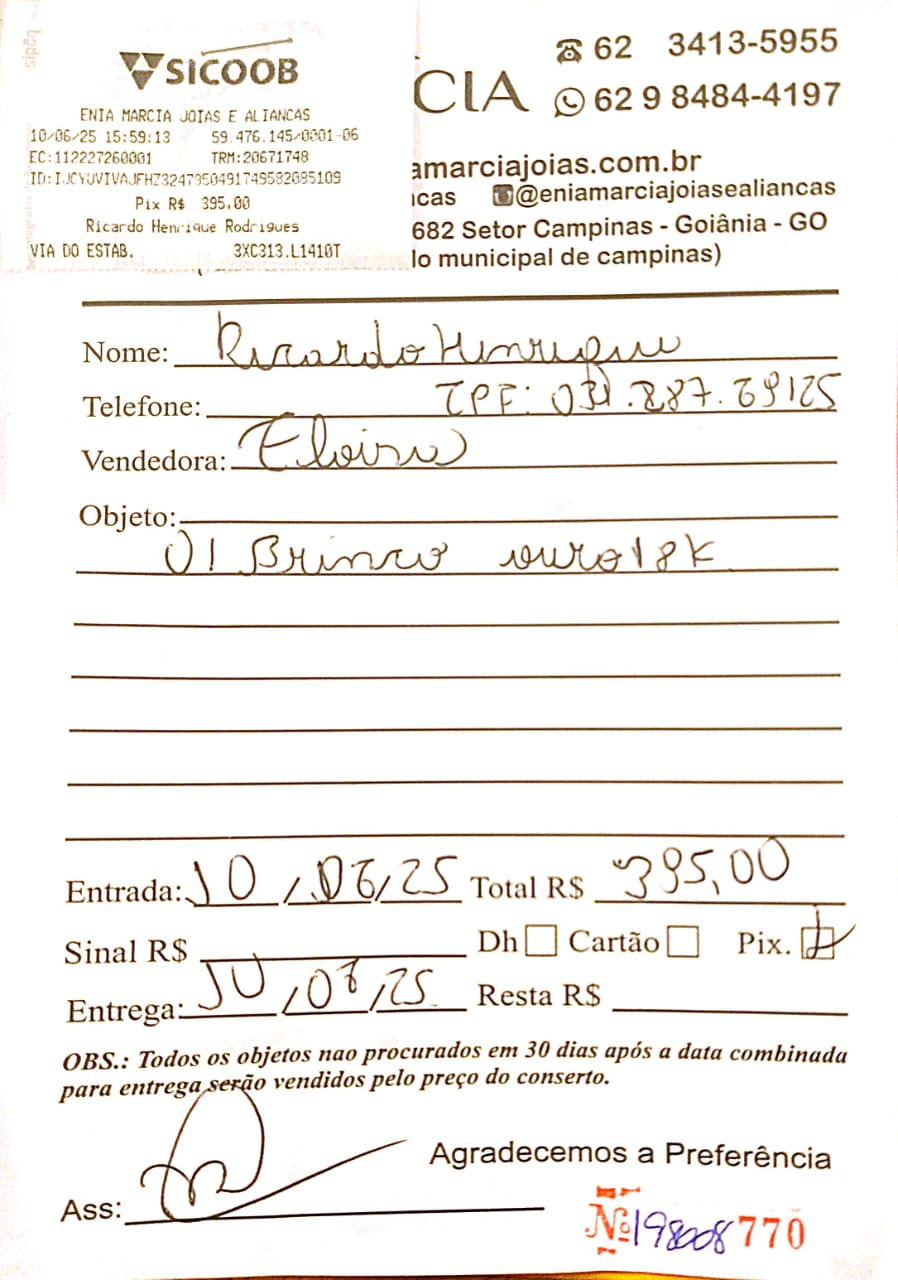 SICOOB
ENIA MARCIA JOIAS E ALIANCAS
10/06/25 15:59:13 59.476.145/0001-06
EC:112227260001 TRM:20671748
Pix R$ 395,00
Ricardo Henrique Rodrigues
VIA DO ESTAB. 3XC313.L1410T
62 3413-5955
CIA 62 9 8484-4197
amarciajoias.com.br
cas @eniamarciajoiasealiancas
682 Setor Campinas - Goiânia - GO
lo municipal de campinas)
Nome: Ricardo Henrique
Telefone: CPF:
Vendedora: Eloisa
Objeto:
01 Brinco ouro 18K
Entrada: 10/06/25 Total R$ 395,00
Sinal R$ Dh Cartão Pix.
Entrega: 10/06/25 Resta R$
OBS.: Todos os objetos nao procurados em 30 dias após a data combinada
para entrega serão vendidos pelo preço do conserto.
Agradecemos a Preferência
Ass:
Nº 198008 770